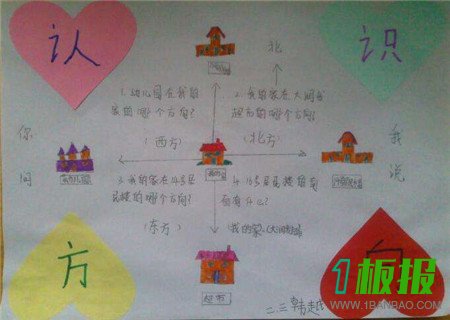 认 识
北
1.幼儿园在我的
家的哪个方向?
2.我的家在大润发
超市的哪个方向?
你
问
我
说
(西方)
(北方)
我的家
3.我的家在14号居
民楼的哪个方向?
4.16号居民楼的南
面有什么?
(东方)
(我的家、大润发超
超市
方 向
二.三 韩越
1板报
WWW.1BANBAO.COM